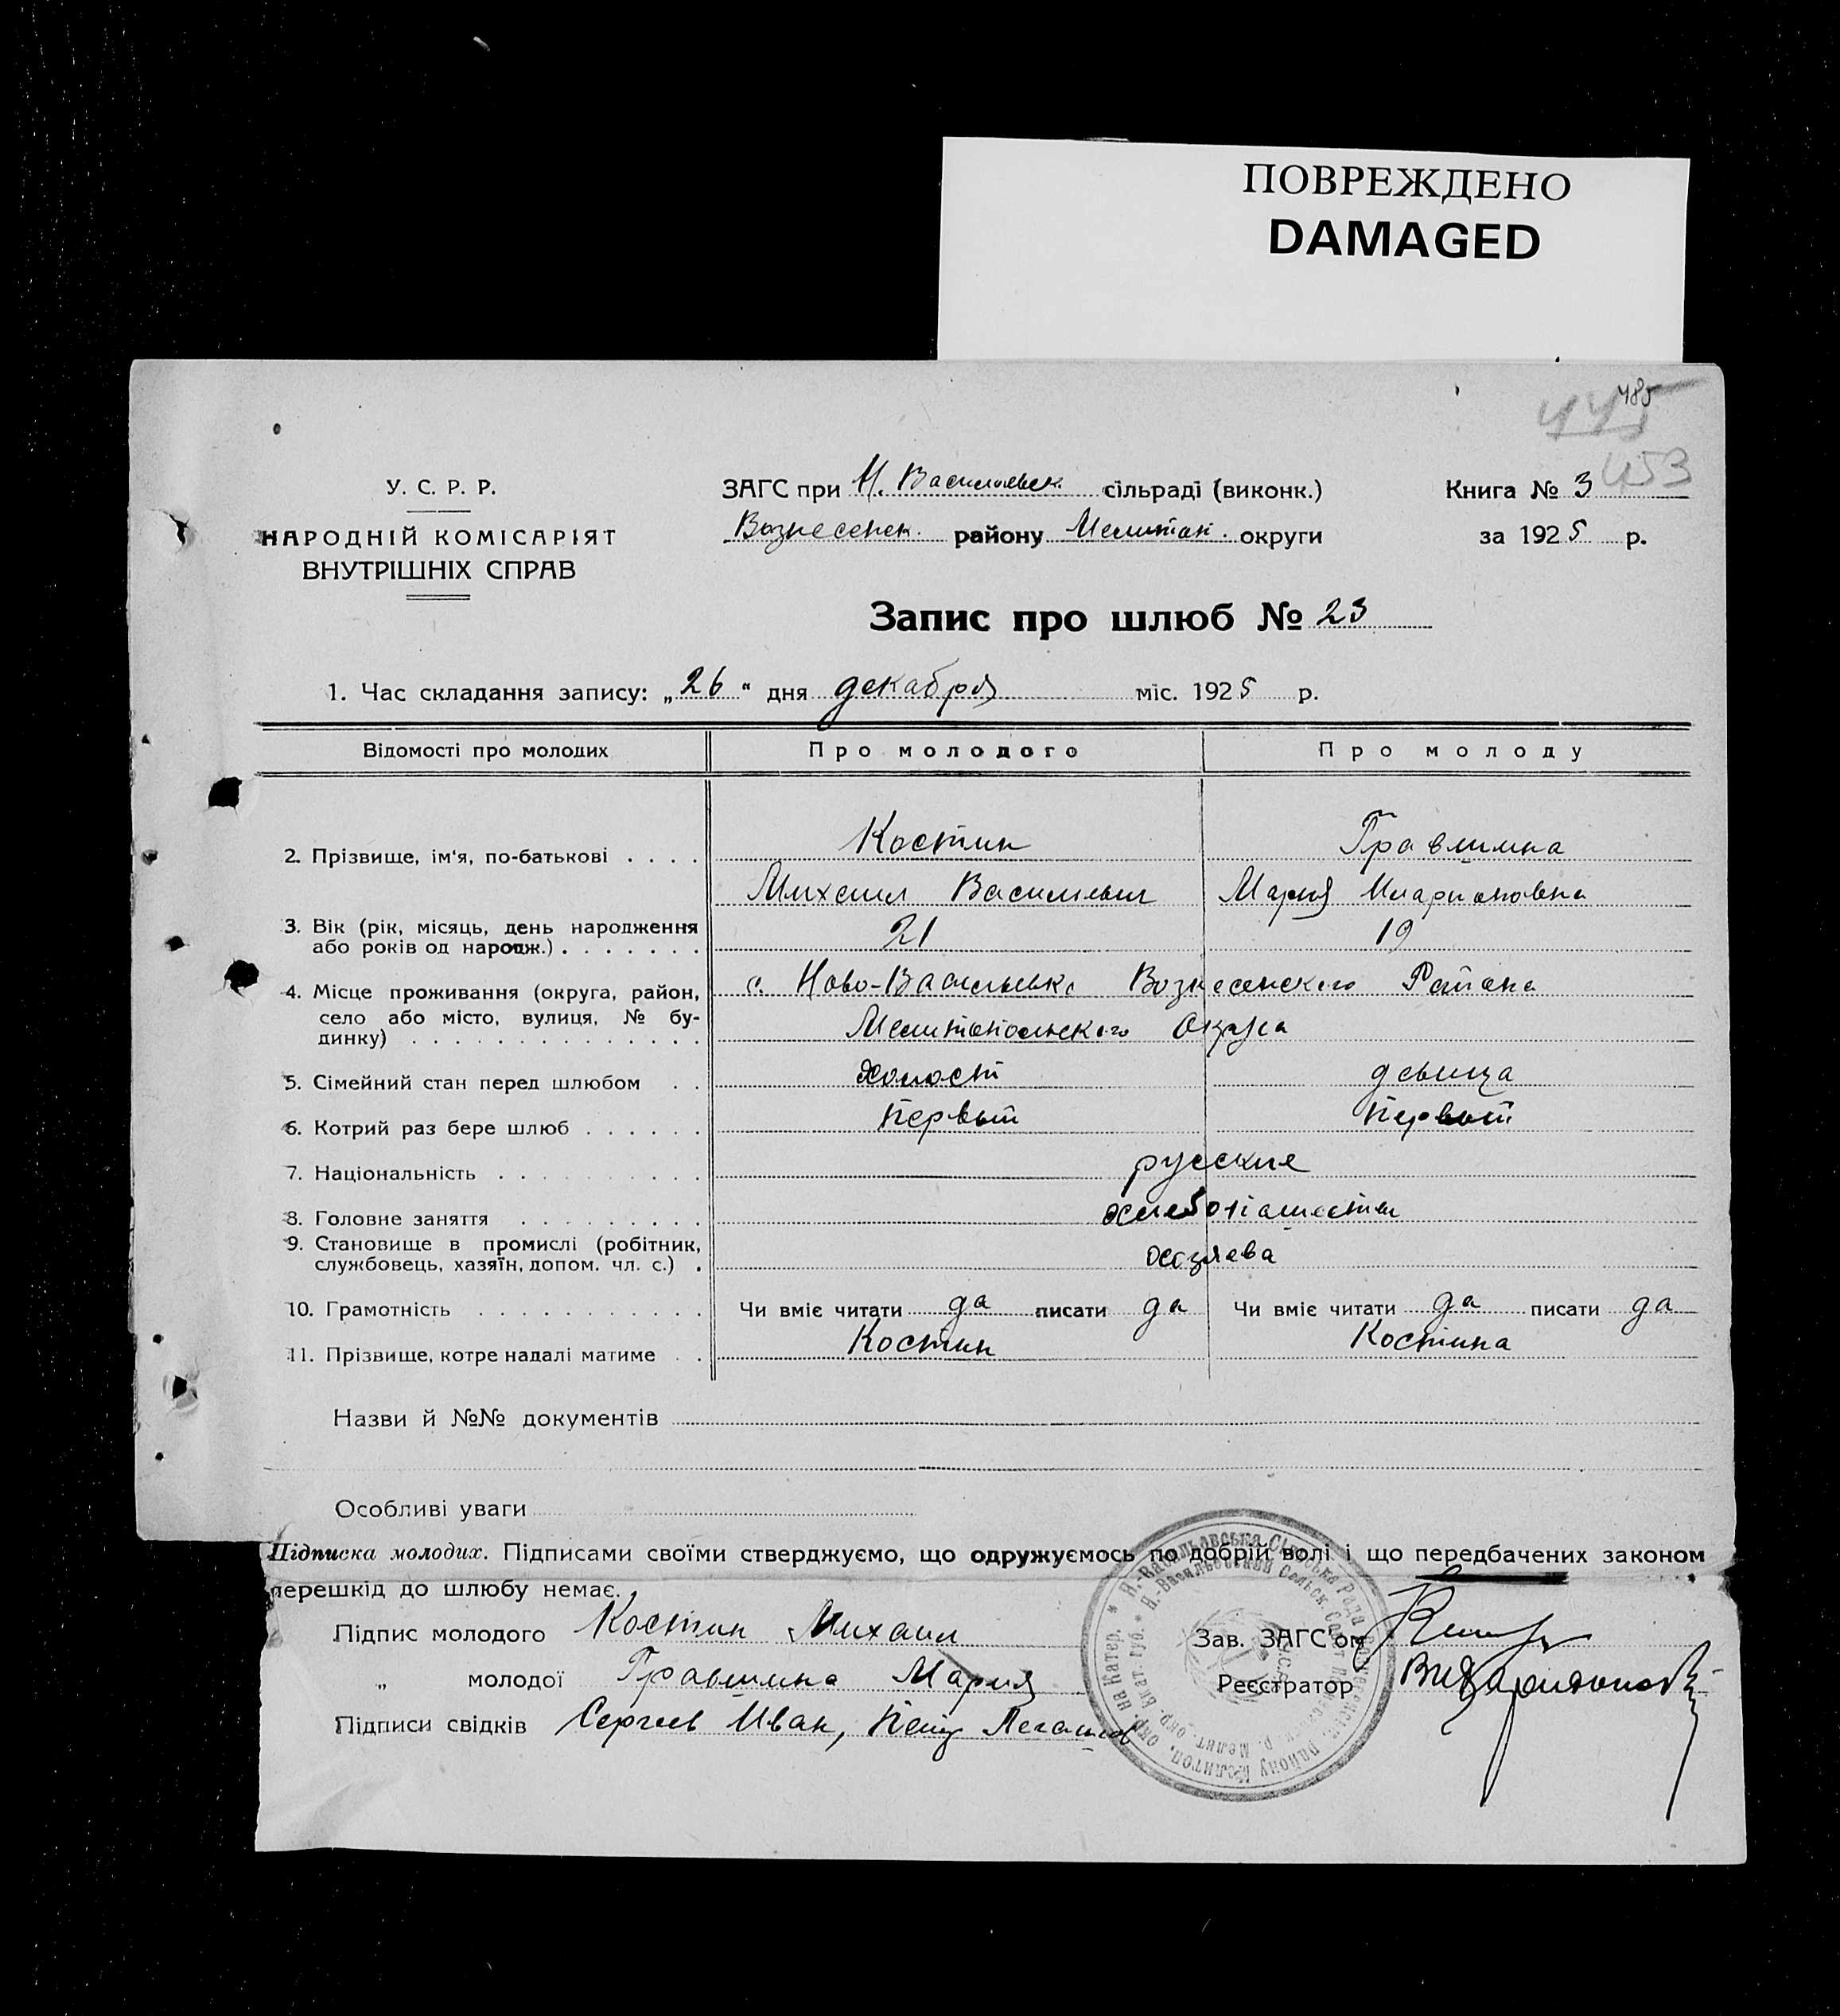 ПОВРЕЖДЕНО
DAMAGED
485
445
453
У. С. Р. Р.
НАРОДНІЙ КОМІСАРІЯТ
ВНУТРІШНІХ СПРАВ
ЗАГС при Н. Васильевск. сільраді (виконк.)
Вознесенск. району Мелитоп. округи
Книга № 3
за 1925 р.
Запис про шлюб № 23
1. Час складання запису: „26“ дня декабря міс. 1925 р.
Відомості про молодих Про молодого Про молоду
2. Прізвище, ім‘я, по-батькові . . . . Костин
Михаил Васильевич Мария Иларионовна
3. Вік (рік, місяць, день народження
або років од народж.) . . . . . . . 21 19
4. Місце проживання (округа, район, с. Ново-Васильевка Вознесенского Района
село або місто, вулиця, № бу-
динку) . . . . . . . . . . . . . . Мелитопольского Округа
5. Сімейний стан перед шлюбом . . холост девица
6. Котрий раз бере шлюб . . . . . . первый первый
7. Національність . . . . . . . . . . русские
8. Головне заняття . . . . . . . . . хлебопашество
9. Становище в промислі (робітник,
службовець, хазяїн, допом. чл. с.) . хозяева
10. Грамотність . . . . . . . . . . . Чи вміє читати да писати да Чи вміє читати да писати да
11. Прізвище, котре надалі матиме . . Костин Костина
Назви й №№ документів
Особливі уваги
Підписка молодих. Підписами своїми стверджуємо, що одружуємось по добрій волі і що передбачених законом
перешкід до шлюбу немає.
Підпис молодого Костин Михаил
Зав. ЗАГС‘ом
„ молодої Мария
Реєстратор
Підписи свідків Сергеев Иван,